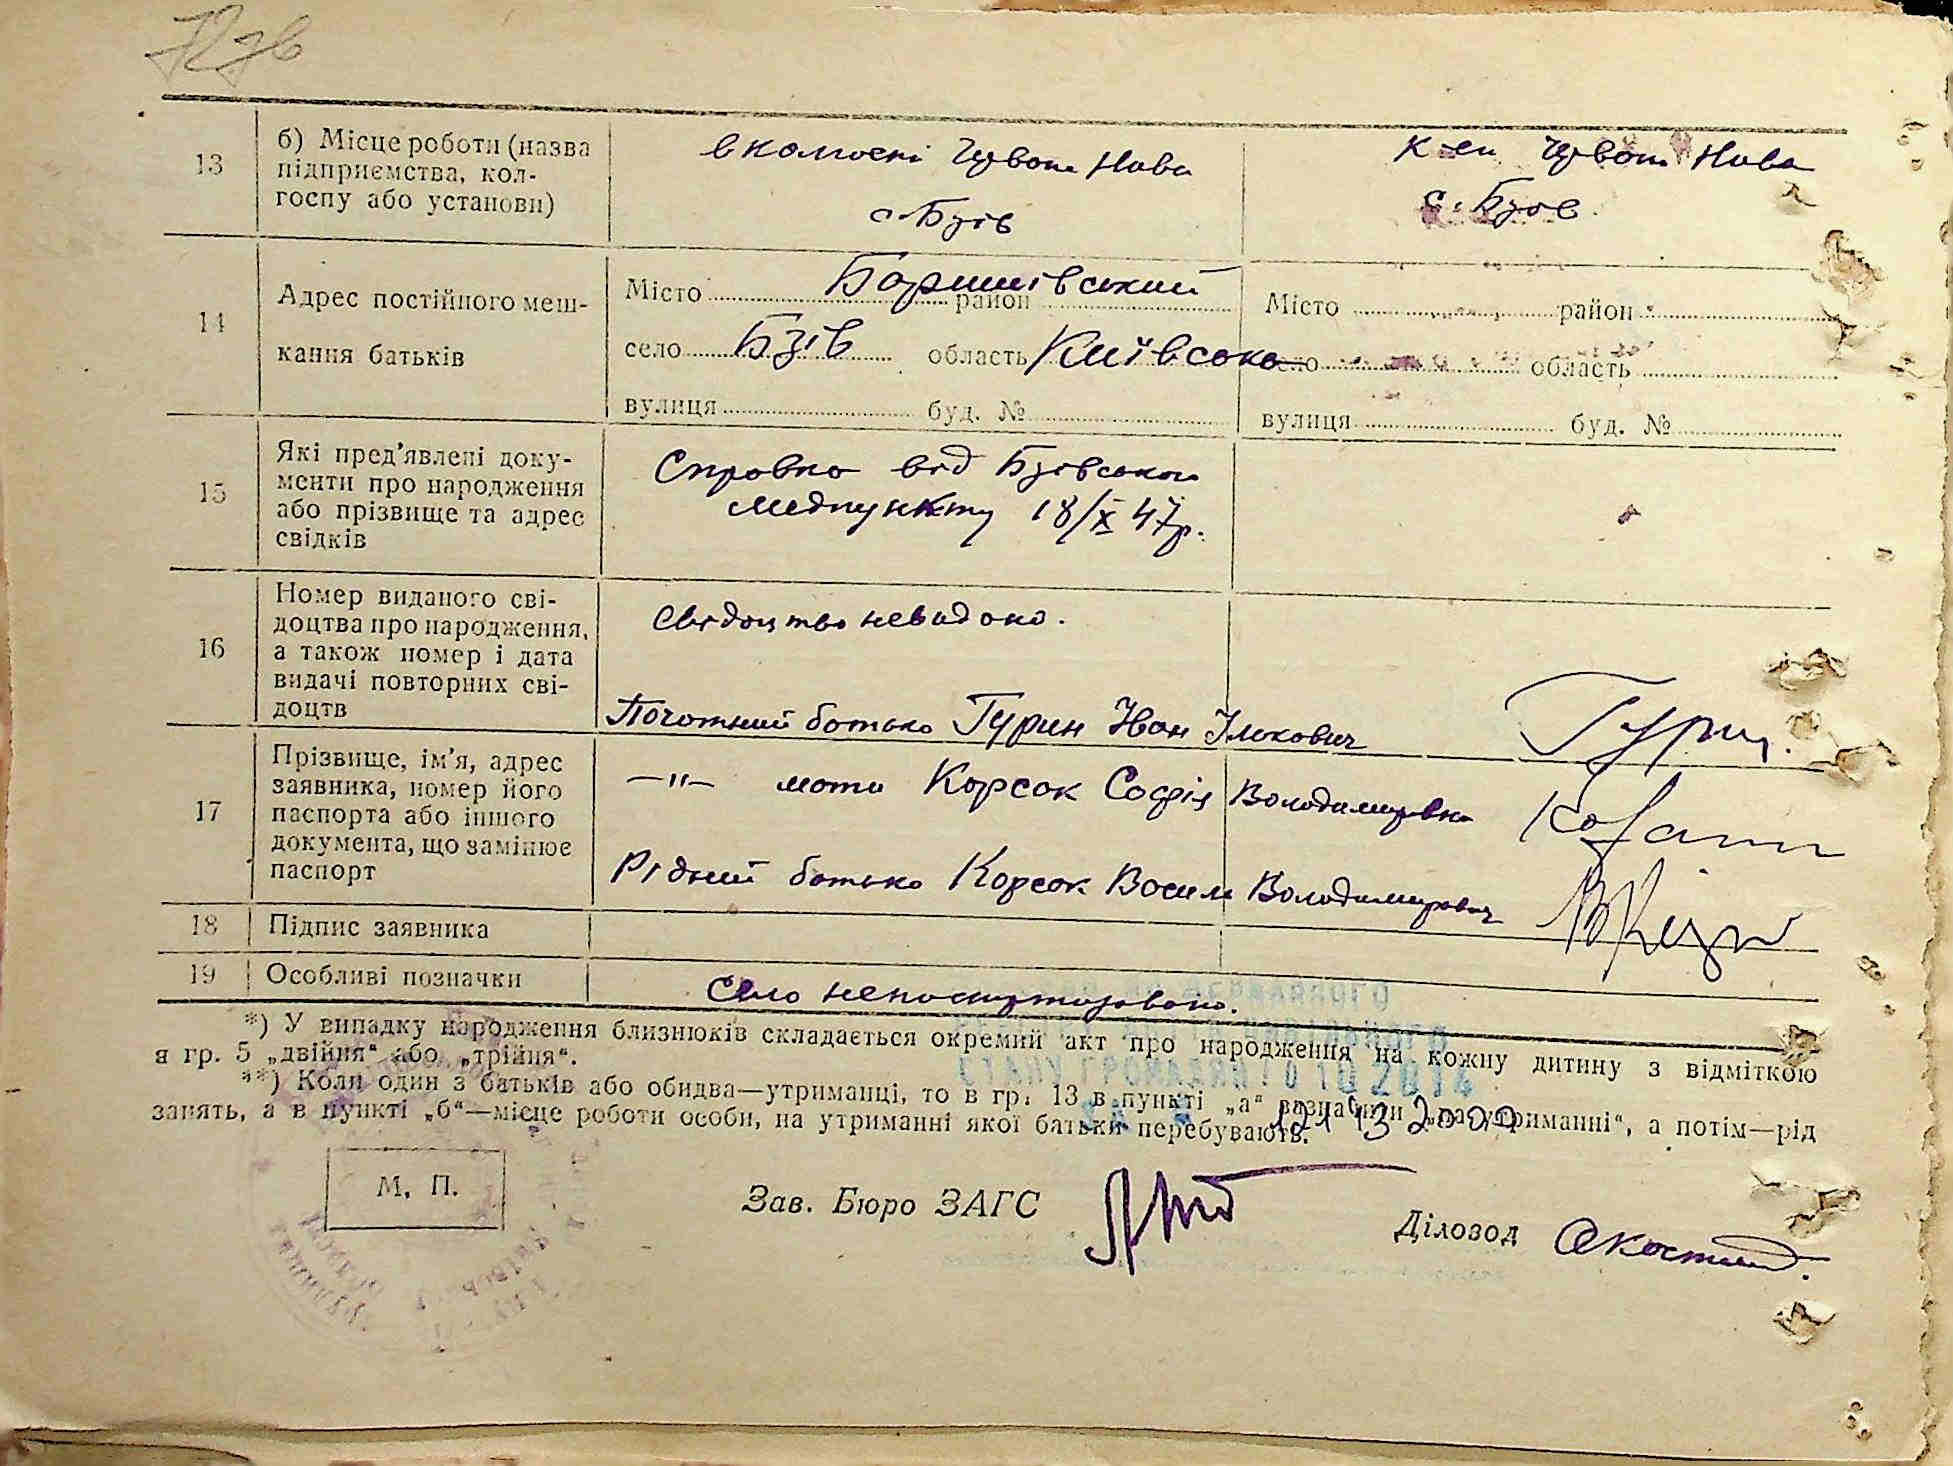 13
б) Місце роботи (назва
підприємства, кол-
госпу або установи)
в колгоспі Червон. Нива
с. Бзів
Червон. Нива
с. Бзов.
14
Адрес постійного меш-
кання батьків
Місто Баришівський район
село Бзів область Київська
вулиця буд. №
Місто район
село область
вулиця буд. №
15
Які пред'явлені доку-
менти про народження
або прізвище та адрес
свідків
Справка від Бзівського
медпункту 18/X 47р.
16
Номер виданого сві-
доцтва про народження,
а також номер і дата
видачі повторних сві-
доцтв
Свідоцтво невидано.
Почотний батько Гурин Іван Ількович
17
Прізвище, ім'я, адрес
заявника, номер його
паспорта або іншого
документа, що замінює
паспорт
—"— мати Корсак Софія Володимирівна
Рідний батько Корсак Васил Володимирович
18
Підпис заявника
19
Особливі позначки
Село непаспортизовано.
*) У випадку народження близнюків складається окремий акт про народження на кожну дитину з відміткою
в гр. 5 „двійня“ або „трійня“.
**) Коли один з батьків або обидва—утриманці, то в гр. 13 в пункті „а“ зазначити „на утриманні“, а потім—рід
занять, а в пункті „б“—місце роботи особи, на утриманні якої батьки перебувають.
М. П.
Зав. Бюро ЗАГС
Діловод